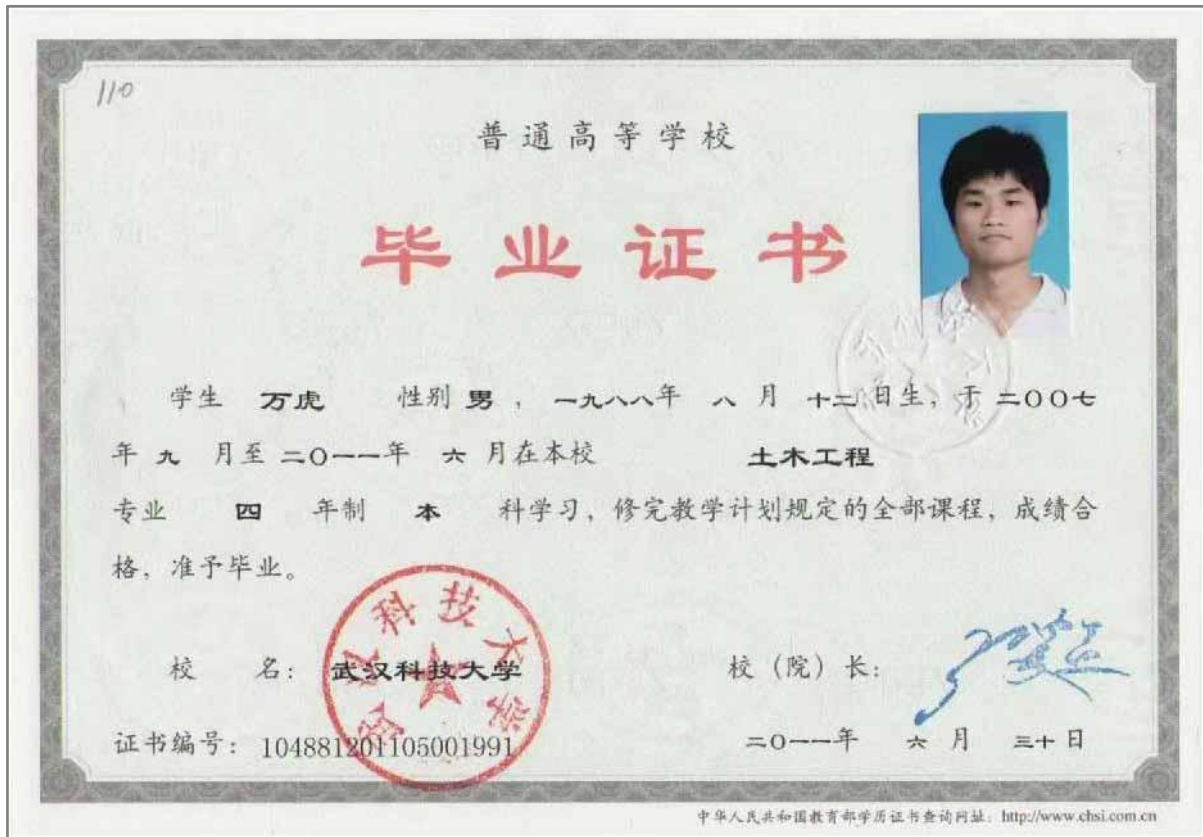 110
普通高等学校
毕业证书
学生 万虎 性别 男，一九八八年 八 月 十二日生，于二〇〇七
年 九 月至二〇一一年 六 月在本校 土木工程
专业 四 年制 本 科学习，修完教学计划规定的全部课程，成绩合
格，准予毕业。
武汉科技大学
校 名：武汉科技大学 校（院）长：
证书编号：104881201105001991 二〇一一年 六 月 三十日
中华人民共和国教育部学历证书查询网址：http://www.chsi.com.cn